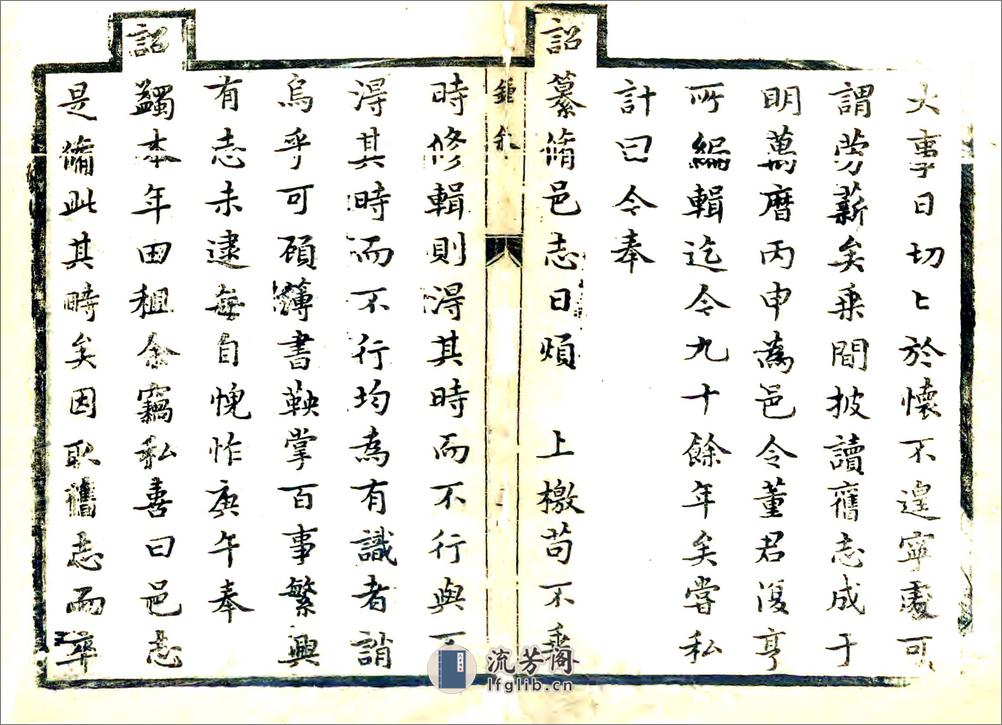 大事日切匕於懷不遑寧處可
謂勞薪矣乗間披讀舊志成于
明萬曆丙申為邑令董君復亨
所編輯迄今九十餘年矣嘗私
計曰今奉
詔纂脩邑志日煩 上檄苟不乗
時修輯則得其時而不行與不
得其時而不行均為有識者誚
烏乎可碩簿書鞅掌百事繁興
有志未逮每自愧怍庚午奉
詔蠲本年田租余竊私喜曰邑志
是脩此其時矣因取舊志而率
流芳阁
lfglib.cn